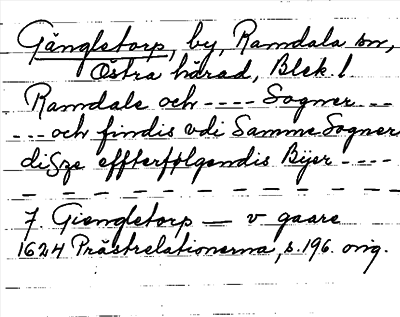 Gängletorp, by, Ramdala sn,
Östra härad, Blek. l.
Ramdale och ---- Sogner ---
--- och findis udi Samme Sogner
disze effterfølgendis Bÿer ----
7 Giengletorp — v gaare
1624 Prästrelationerna, s. 196. orig.